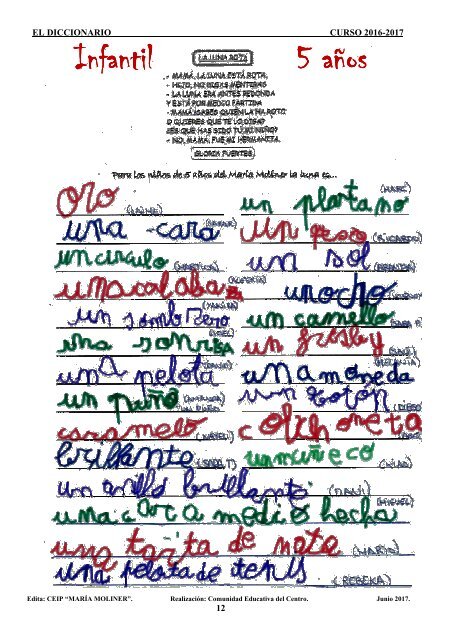 EL DICCIONARIO CURSO 2016-2017
Infantil 5 años
LA LUNA ROTA
- MAMÁ, LA LUNA ESTÁ ROTA.
- HIJO, NO DIGAS MENTIRAS
- LA LUNA ERA ANTES REDONDA
Y ESTÁ POR MEDIO PARTIDA
- MAMÁ ¿SABES QUIEN LA HA ROTO
O QUIERES QUE TE LO DIGA?
¿ES QUE HAS SIDO TU MI NIÑO?
- NO, MAMÁ, FUE MI HERMANITA.
GLORIA FUERTES
Para los niños de 5 años del María Moliner la luna es...
oro un platano
una cara un peso (RICARDO)
un circulo un sol
una calabaza un ocho
un sombrero un camello
una sonrisa un frosby
una pelota una moneda
un puño un botón (DIEGO)
caramelo colchoneta
brillante un muñeco
un anillo brillante (DANI)
una cara medio hecha (MIGUEL)
una tarta de nata (MARIA)
una pelota de tenis (REBEKA)
Edita: CEIP “MARÍA MOLINER”. Realización: Comunidad Educativa del Centro. Junio 2017.
12